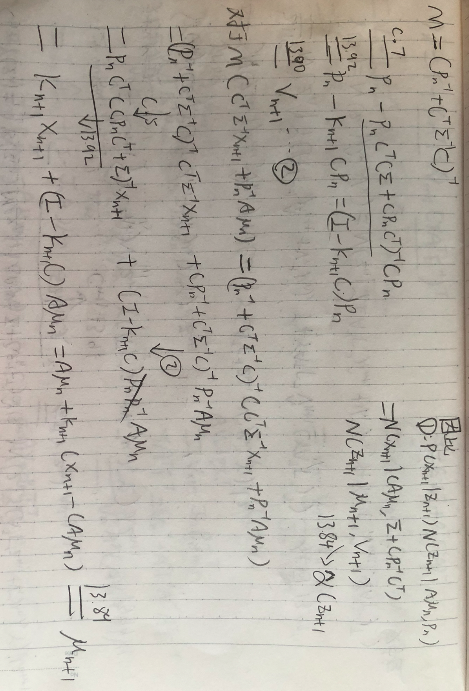 M = (Pn⁻¹ + CᵀΣ⁻¹C)⁻¹
C.7 = Pn - PnCᵀ(Σ + CPnCᵀ)⁻¹CPn
13.92 = Pn - Kn+1CPn = (I - Kn+1C)Pn
13.90 = Vn+1 ... ②
对于 M(CᵀΣ⁻¹xn+1 + Pn⁻¹Aμn) = (Pn⁻¹ + CᵀΣ⁻¹C)⁻¹(CᵀΣ⁻¹xn+1 + Pn⁻¹Aμn)
= (Pn⁻¹ + CᵀΣ⁻¹C)⁻¹CᵀΣ⁻¹xn+1 + (Pn⁻¹ + CᵀΣ⁻¹C)⁻¹Pn⁻¹Aμn
↓ C.5 ↓ ②
= PnCᵀ(CPnCᵀ + Σ)⁻¹xn+1 + (I - Kn+1C)PnPn⁻¹Aμn
↓ 13.92
= Kn+1xn+1 + (I - Kn+1C)Aμn = Aμn + Kn+1(xn+1 - CAμn) 13.89 = μn+1
①: P(xn+1|zn+1)N(zn+1|Aμn, Pn)
= N(xn+1|CAμn, Σ + CPnCᵀ)
N(zn+1|μn+1, Vn+1)
13.84 → α̂(zn+1